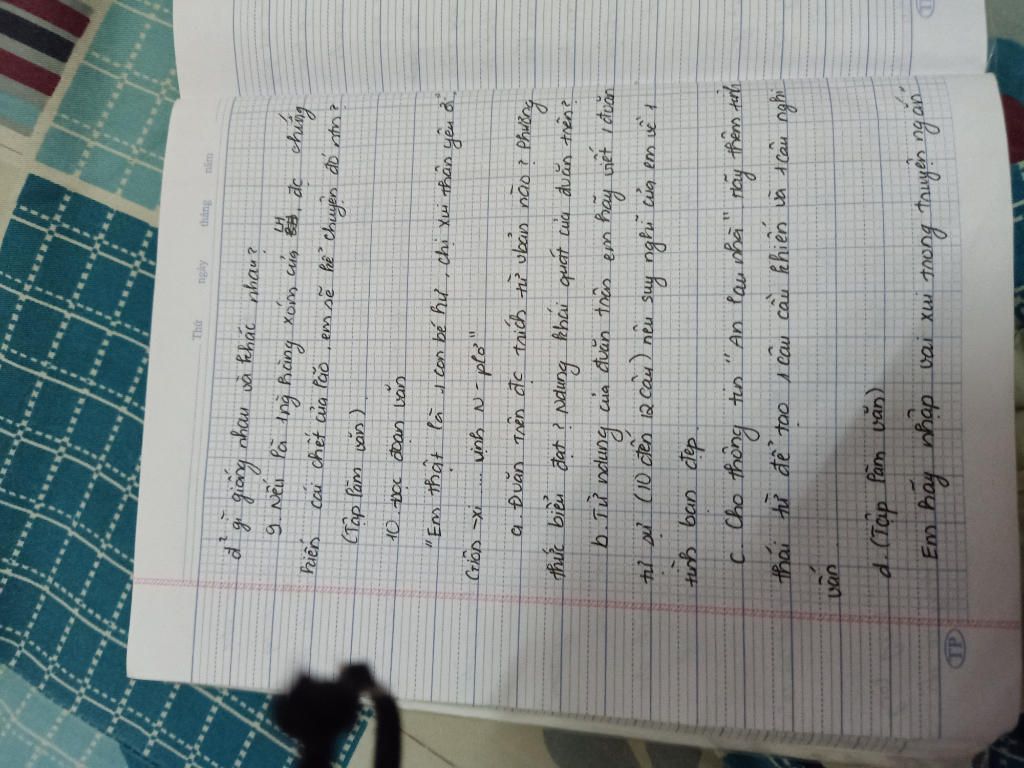 Thứ ngày tháng năm
d² gì giống nhau và khác nhau?
9 Nếu là 1ng hàng xóm của LH đc chứng
kiến cái chết của lão, em sẽ kể chuyện đó ntn?
(Tập làm văn)
10 Đọc đoạn văn
"Em thật là 1 con bé hư, chị xiu thân yêu ơi"
Giôn-xi ..... vịnh N - plơ"
a Đvăn trên đc trích từ vbản nào? Phương
thức biểu đạt? Ndung khái quát của đvăn trên?
b Từ ndung của đvăn trên em hãy viết 1 đvăn
tự sự (10 đến 12 câu) nêu suy nghĩ của em về 1
tình bạn đẹp
c Cho thông tin "An lau nhà" Hãy thêm tình
thái từ để tạo 1 câu cầu khiến và 1 câu nghi
vấn
d. (Tập làm văn)
Em hãy nhập vai xiu trong truyện ngắn
TP